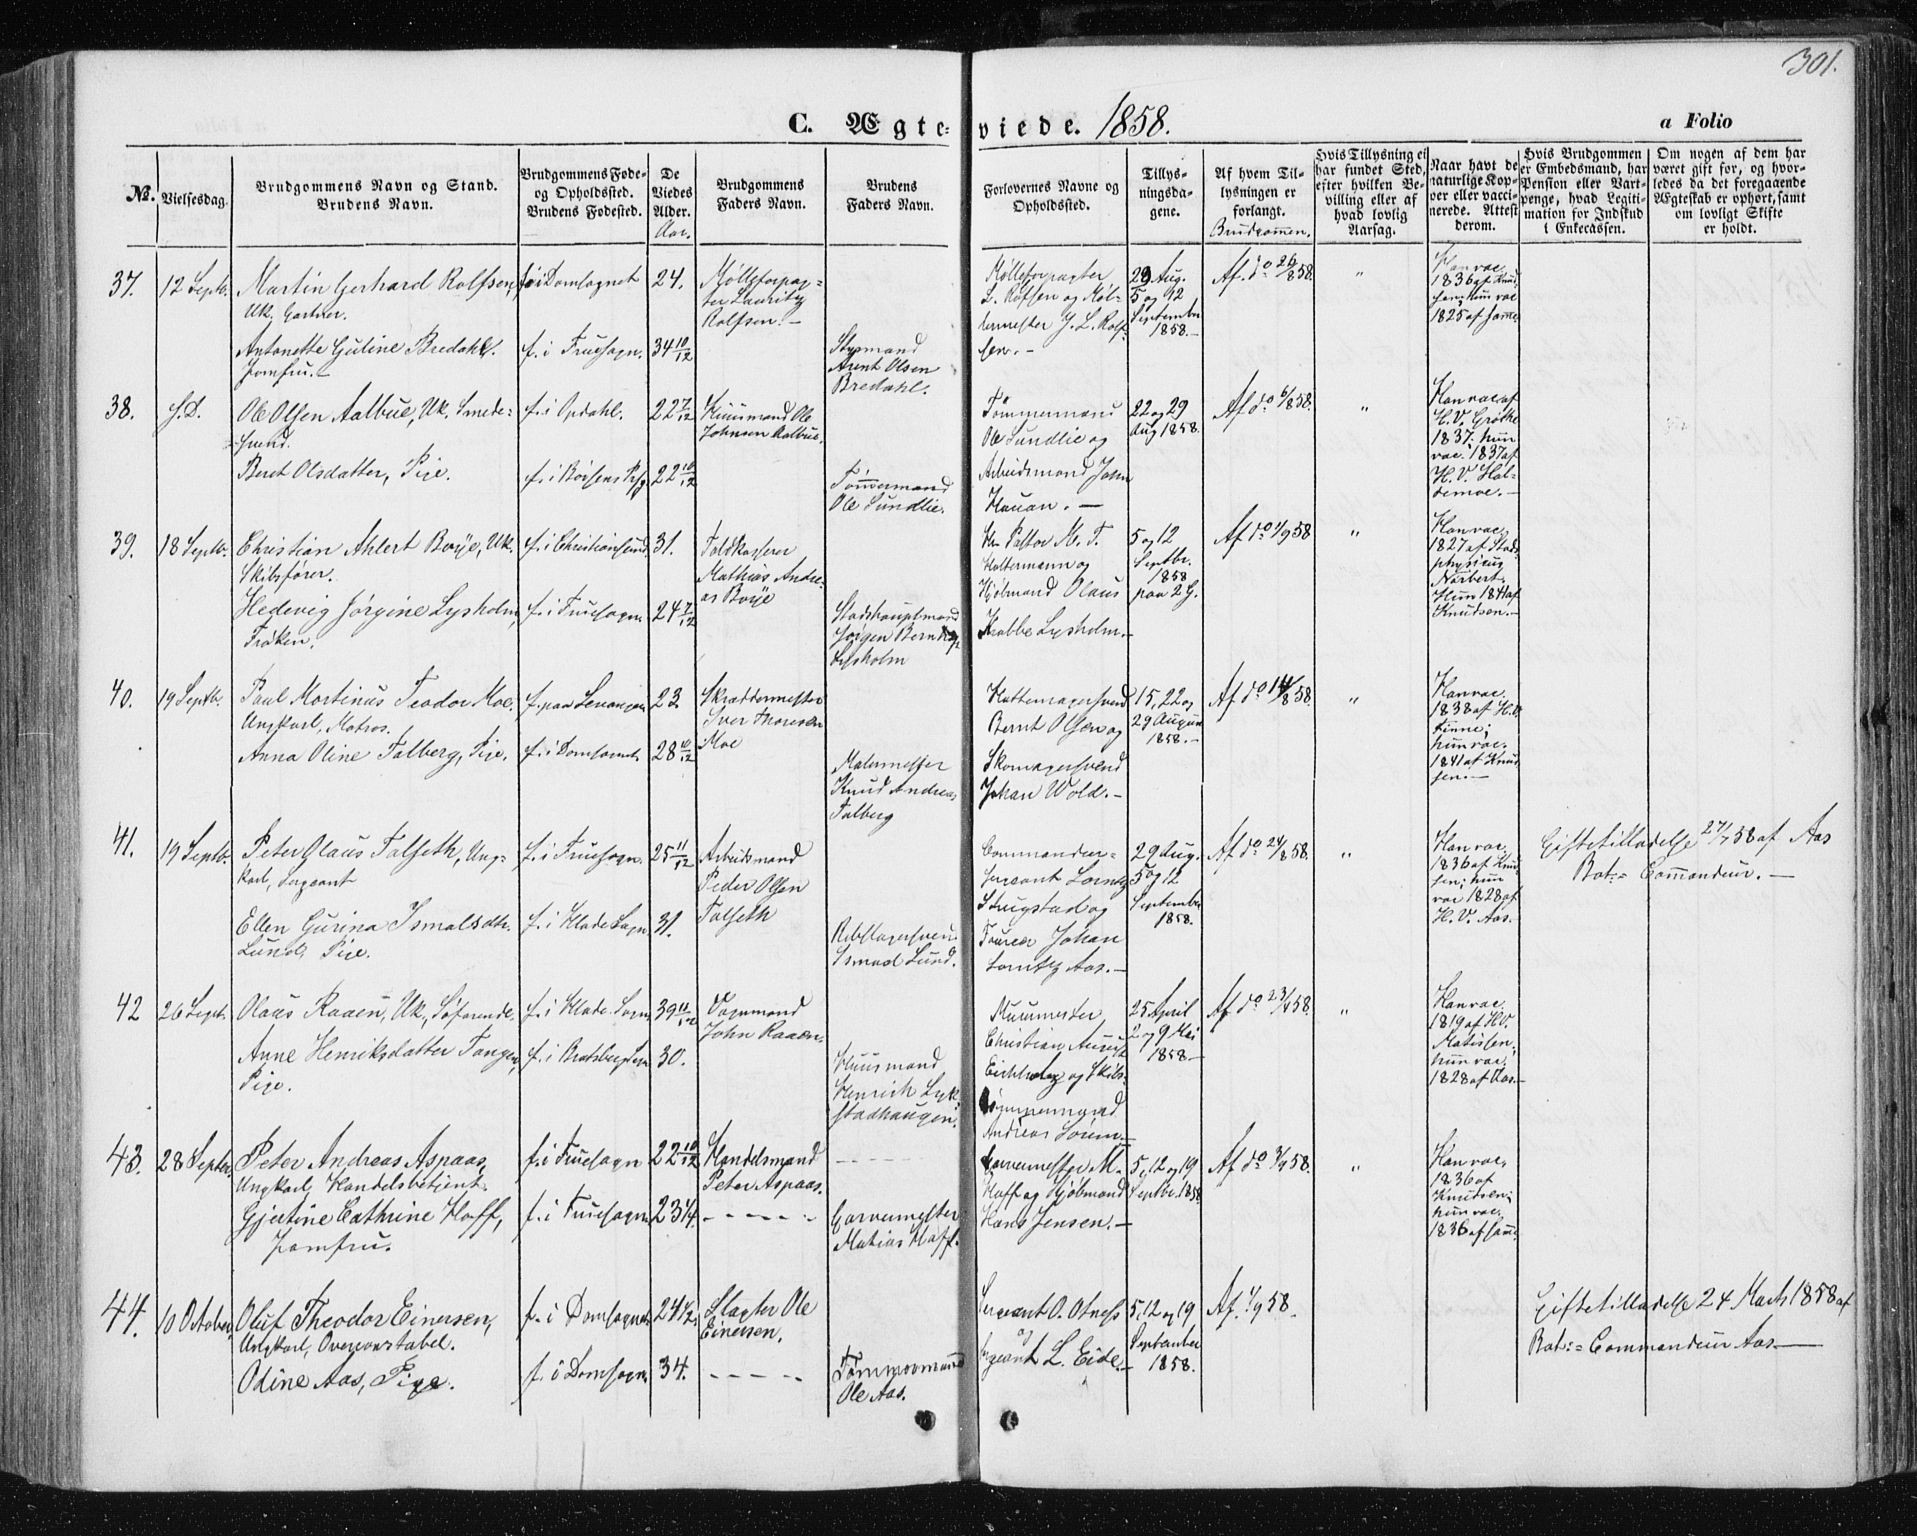 301.
C. Ægte- viede. 1858.
a Folio
No.
Vielsesdag.
Brudgommens Navn og Stand.
Brudens Navn.
Brudgommens Føde-
og Opholdssted.
Brudens Fødested.
De
Viedes
Alder.
Aar.
Brudgommens
Faders Navn.
Brudens
Faders Navn.
Forlovernes Navne og
Opholdssted.
Tillys-
ningsda-
gene.
Af hvem Til-
lysningen er
forlangt.
Brudgommen.
Hvis Tillysning ei
har fundet Sted,
efter hvilken Be-
villing eller af
hvad lovlig
Aarsag.
Naar havt de
naturlige Kop-
per eller vacci-
nerede. Attest
derom.
Hvis Brudgommen
er Embedsmand, har
Pension eller Vart-
penge, hvad Legiti-
mation for Indskud
i Enkecassen.
Om nogen af dem har
været gift før, og hvor-
ledes da det foregaaende
Ægteskab er ophørt, samt
om lovligt Skifte
er holdt.
37.
12 Septb.
Martin Gerhard Rolfsen,
Uk. Gartner.
Antonette Guline Bredahl.
Jomfru.-
f. i Domsognet
f. i Fruesogn.
24.
34 10/12
Mølleforpag-
ter Lauritz
Rolfsen.-
Styrmand
Arent Olsen
Bredahl.
Mølleforpagter
L. Rolfsen og Møl-
lermester J. L. Rolf-
sen.-
29 Aug.
5 og 12
September
1858.-
Af do 26/8 58.
"
Han vac.
1836 af Knud-
sen; hun vac
1825 af samme
38.
s. D.
Ole Olsen Aalbue, Uk. Smede-
svend.
Beret Olsdatter, Pige.
f. i Opdahl.
f. i Børsens Pg
22 7/12
22 10/12
Huusmand Ole
Johnsen Aalbue.
Tømmermand
Ole Sundlie.
Tømmermand
Ole Sundlie og
Arbeidsmand John
Hauan.-
22 og 29
Aug 1858.
Af do 6/8 58.
"
Han vac. af
H. V. Grøthe
1837. hun
vac. 1837 af
H. V. Hal-
semoe.-
39.
18 Septb.
Christian Ahlert Boye, Uk.
Skibsfører.
Hedevig Jørgine Lysholm,
Frøken.
f. i Christiansund
f. i Fruesogn
31.
24 7/12
Toldkasserer
Mathias Andre-
as Boye
Stadshauptmand
Jørgen Berndt
Lysholm
Hr. Pastor M. T.
Holtermann og
Kjøbmand Olaus
Krabbe Lysholm.-
5 og 12
Septbr.
1858
paa 2 G.
Af do 1/9 58
"
Han vac.
1827 af Stads-
physicus
Norbert
Hun 1841 af
Knudsen.-
40.
19 Septb.
Paul Martinus Teodor Moe
Ungkarl, Matros.
Anna Oline Talberg, Pige.
f. paa Levanger
f. i Domsognet
23
28 11/12
Skræddermester
Iver Thoresen
Moe
Malermester
Knud Andreas
Talberg
Hattemagersvend
Bernt Olsen og
Skomagersvend
Johan Wold.-
15, 22 og
29 August
1858.-
Af do 14/8 58.
"
Han vac.
1838 af H.V.
Finne;
hun vac.
1841 af Knud-
sen.-
41.
19 Septb.
Peter Olaus Falseth, Ung-
karl, Sergeant
Ellen Gurina Ismalsdtr.
Lund, Pige.
f. i Fruesogn.
f. i Hlade Sogn
25 11/12
31.
Arbeidsmand
Peder Olsen
Falseth
Rebslagersvend
Ismael Lund.
Commandeer-
sergeant Lorntz
Strugstad og
Foureer Johan
Lorntz Aas.-
29 Aug.
5 og 12
September
1858.
Af do 24/8 58.
"
Han vac.
1836 af Knud-
sen; hun
vac 1828 af
H. V. Aas.
Giftetilladelse 27/7 58 af Aas
Bat:= Commandeur.-
42
26 Sept.
Olaus Raaen, Uk, Søfarende.
Anne Henriksdatter Tangen,
Pige.
f. i Hlade Sogn
f. i Bratsberg Sogn
39 11/12
30.
Vognmand
John Raaen.
Huusmand
Henrich Lyk-
stadhaugen.
Muurmester
Christian August
Eichholz og Skibs-
tømmermand
Andreas Sørem.-
25 April
2 og 9 Mai
1858-
Af do 23/4 58.
"
Han vac.
1819 af H.V.
Matissen;
hun vac.
1828 af Aas.-
43.
28 Septbr.
Peter Andreas Aspaas,
Ungkarl, Handelsbetjent.
Gjertine Cathrine Hoff,
Jomfru.
f. i Fruesogn
f. i Fruesogn
22 10/12
23 1/4
Handelsmand
Peter Aspaas.
Garvermester
Matias Hoff.
Garvermester M.
Hoff og Kjøbmand
Hans Jensen.-
5, 12 og 19
Septbr. 1858
Af do 3/9 58.
"
Han vac.
1836 af
Knudsen;
hun vac.
1836 af samme
44.
10 October
Oluf Theodor Einersen,
Ungkarl, Overconstabel.
Odine Aas, Pige.
f. i Domsognet
f. i Domsogn
24 1/2
34.
Slagter Ole
Einersen.
Tømmermand
Ole Aas.
Sergeant O. Otness
og
Sergeant L. Eide.-
5, 12 og 19
September
1858.
Af. 1/9 58.
Giftetilladelse 24 Marts 1858 af
Bat:= Commandeur Aas-